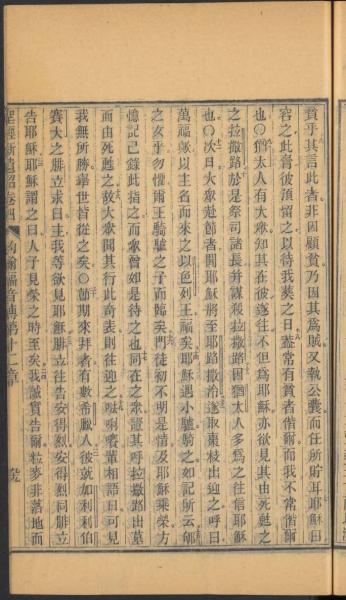 貧乎其言此者非因顧貧乃因其為賊又執公囊而任所貯耳耶穌曰
容之此膏彼預留之以待我葬之日蓋常有貧者偕爾而我不常偕爾
也〇猶太人有大眾知其在彼遂往不但為耶穌亦欲見其由死甦之
之拉撒路於是祭司諸長并謀殺拉撒路因猶太人多為之往信耶穌
也〇次日大眾赴節者聞耶穌將至耶路撒希遂取棗枝出迎之呼曰
萬福歟以主名而來之以色列王福矣耶穌遇小驢騎之如記所云郇
之女乎勿懼爾王騎驢之子而臨矣門徒初不明是情及耶穌乘榮方
憶記已錄此指之而眾曾如是待之也同在之眾證其呼拉撒路出墓
而由死甦之故大眾聞其行此奇表則往迎之𠵽唎㗰輩相語曰可見
我無所勝舉世皆從之矣〇節期來拜者有數希臘人彼就加利利伯
賽大之腓立求曰主我等欲見耶穌腓立往告安得烈安得烈同腓立
告耶穌耶穌謂之曰人子見榮之時至矣我誠實告爾粒麥非落地而
聖經新遺詔卷四 約翰福音傳第十二章